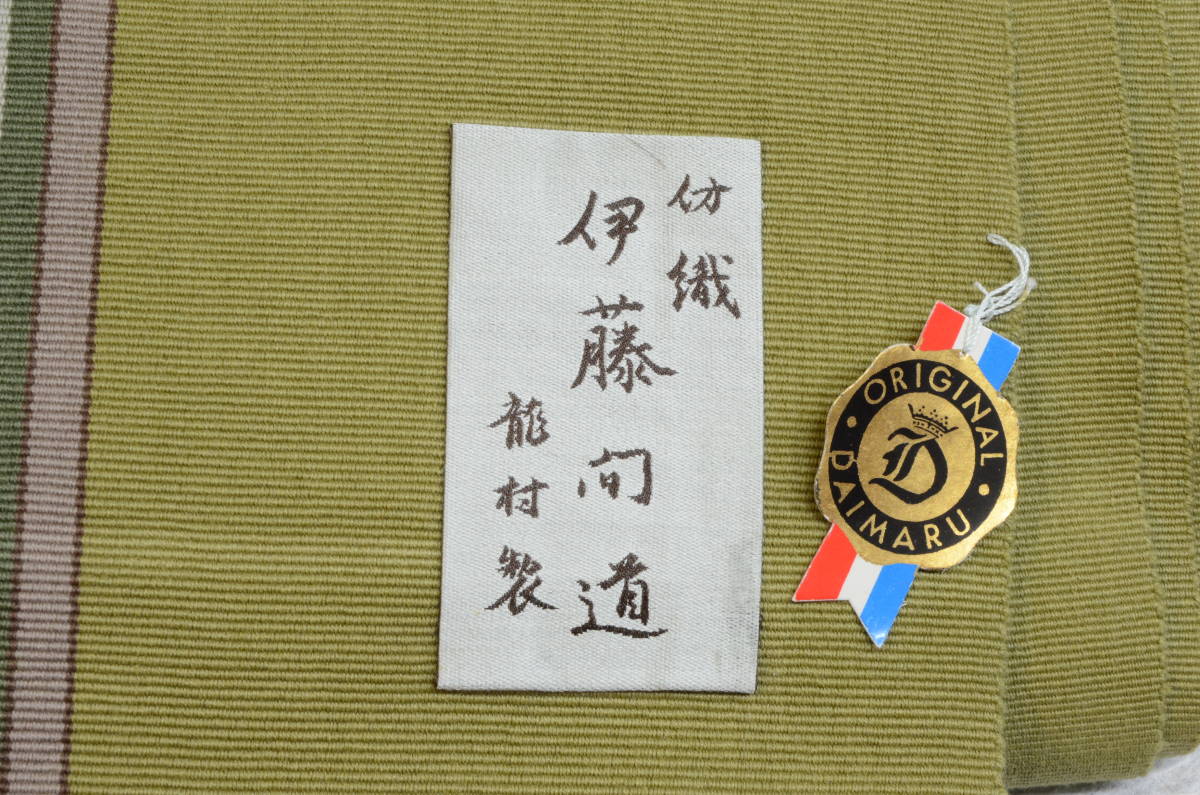 仿織
伊藤间道
龍村製
ORIGINAL
D
DAIMARU